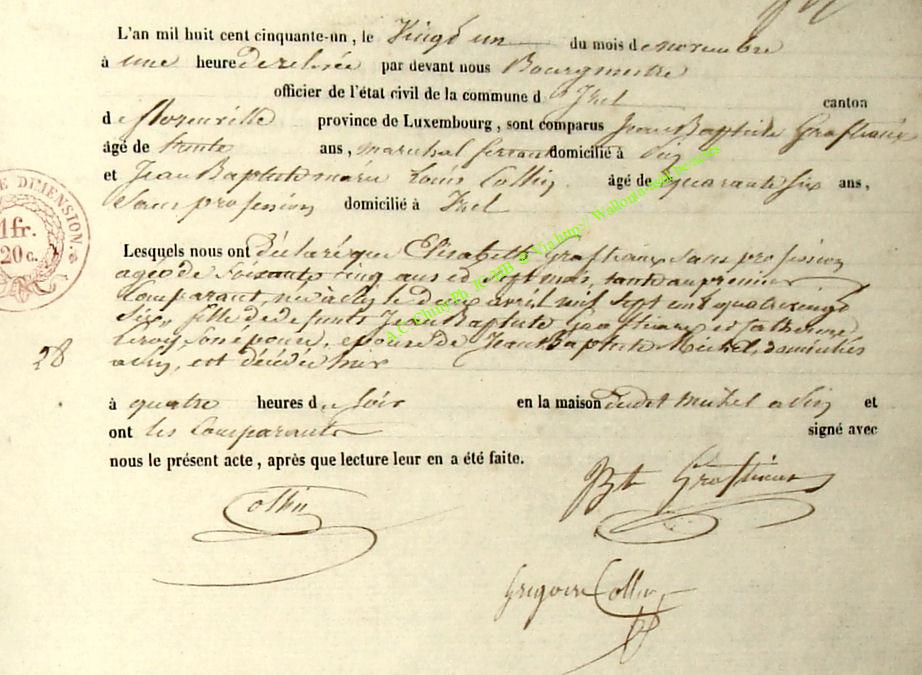 L'an mil huit cent cinquante-un, le Vingt un du mois de novembre
à une heure de relevée par devant nous Bourgmestre
officier de l'état civil de la commune d'Izel canton
de florenville province de Luxembourg, sont comparus Jean Baptiste Graftiaux
âgé de trente ans, maréchal ferrant domicilié à
et Jean Baptiste marie Louis Collin âgé de quarante six ans,
Sans profession domicilié à Izel
Lesquels nous ont déclaré que Elisabeth Graftiaux Sans profession
agée de Soixante cinq ans et Sept mois, tante au premier
Comparant, née à le deux avril mil Sept cent quatre vingt
Six, fille de defunts Jean Baptiste Graftiaux et
Leroy, Son épouse, épouse de Jean Baptiste Michel, domiciliés
est décédée hier
28
à quatre heures du Soir en la maison dudit Michel et
ont les Comparants signé avec
nous le présent acte, après que lecture leur en a été faite.
Collin
Bte Graftiaux
Grégoire Collin
DIMENSION.
1fr.
20 c.